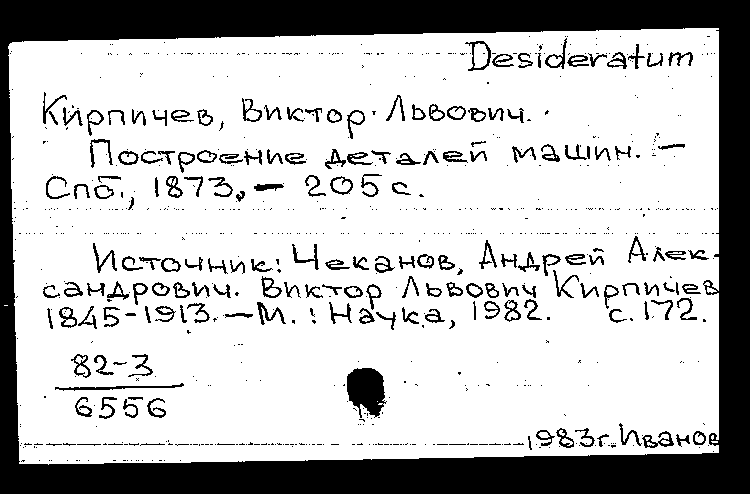 Desideratum
Кирпичев, Виктор Львович.
Построение деталей машин. —
Спб., 1873. — 205 с.
Источник: Чеканов, Андрей Алек-
сандрович. Виктор Львович Кирпичев
1845-1913. — М. : Наука, 1982. с. 172.
82-3
6556
1983г. Иванов